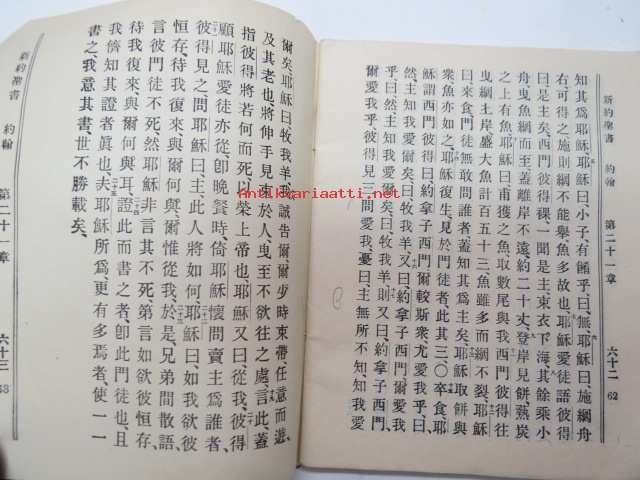 新約聖書 約翰 第二十一章 六十二 62
知其為耶穌、耶穌曰、小子有餔乎、曰、無、耶穌曰、施網舟
右、可得之、施則網不能舉、魚多故也、耶穌愛徒語彼得
曰、是主矣、西門彼得裸、一聞是主、束衣下海、其餘乘小
舟曳魚網而至、蓋離岸不遠、約二十丈、登岸、見餅、爇炭
之上有魚、耶穌曰、甫獲之魚、取數尾與我、西門彼得往
曳網上岸、盛大魚計百五十三、魚雖多而網不裂、耶穌
曰、來食、門徒無敢問誰者、蓋知其為主矣、耶穌取餅與
衆、魚亦如之、耶穌復生、見於門徒者、此其三〇卒食、耶
穌謂西門彼得曰、約拿子西門、爾較斯衆尤愛我乎、曰、
然、主知我愛爾矣、曰、牧我羊、又曰、約拿子西門、爾愛我
乎、曰、然、主知我愛爾矣、曰、牧我羊、則又曰、約拿子西門、
爾愛我乎、彼得見三問愛我、憂曰、主無所不知、知我愛
爾矣、耶穌曰、牧我羊、我誠告爾、爾少時束帶、任意而遊、
及其老也、將伸手見束於人、曳至不欲往之處、言此、蓋
指彼得將若何而死、以榮上帝也、耶穌又曰、從我、彼得
顧耶穌愛徒亦從、卽晚餐時、倚耶穌懷、問賣主為誰者、
彼得見之、問耶穌曰、主、此人將如何、耶穌曰、如我欲彼
恒存、待我復來、與爾何與、爾惟從我、於是兄弟間散語、
言彼門徒不死、然耶穌非言其不死、第言如欲彼恒存、
待我復來、與爾何與耳、證此而書之者、卽此門徒也、且
我儕知其證者眞也、夫耶穌所為、更有多焉者、使一一
書之、我意其書、世不勝載矣、
新約聖書 約翰 第二十一章 六十三 63
Antikvariaatti.net